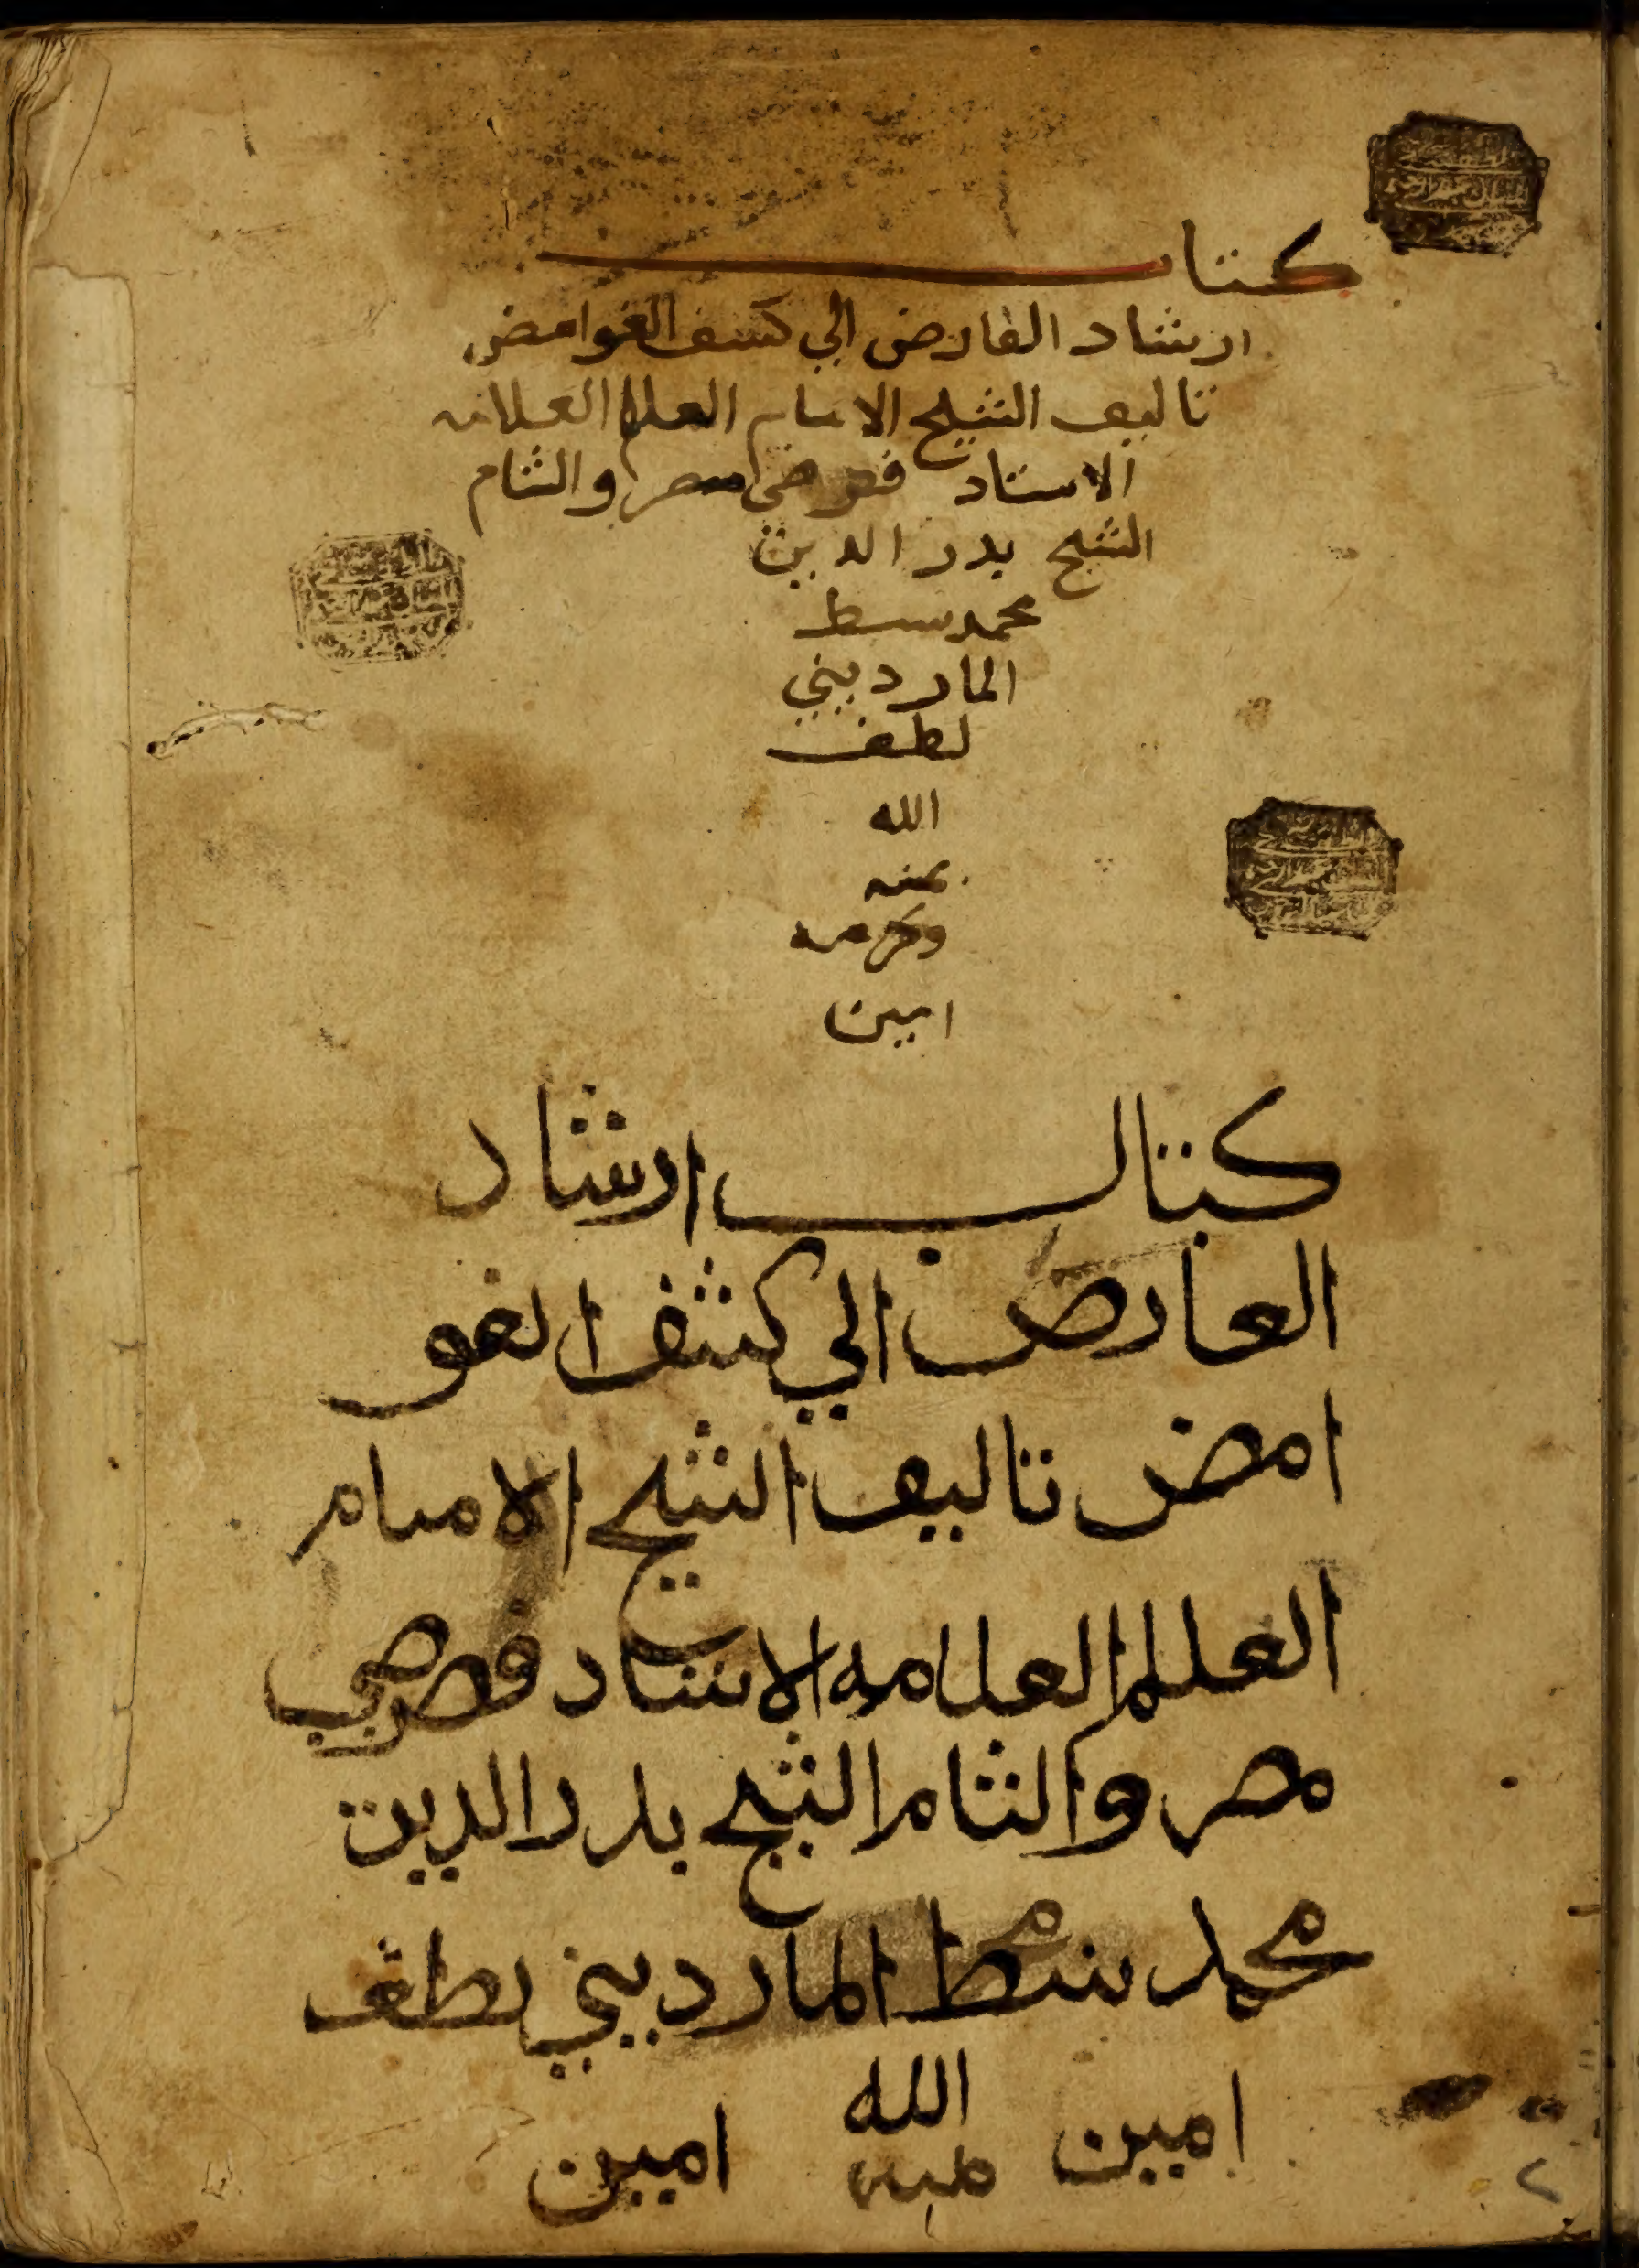 كتاب
ارشاد الفارض الي كشف الغوامض
تاليف الشيخ الامام العالم العلامه
الاستاد فرضي مصر والشام
الشيخ بدر الدين
محمد سبط
المارديني
لطف
الله
بمنه
وكرمه
امين
كتاب ارشاد
العارض الي كشف الغو
امض تاليف الشيخ الامام
العالم العلامه الاستاد فرضي
مصر والشام الشيخ بدر الدين
محمد سبط المارديني لطف
امين الله امين